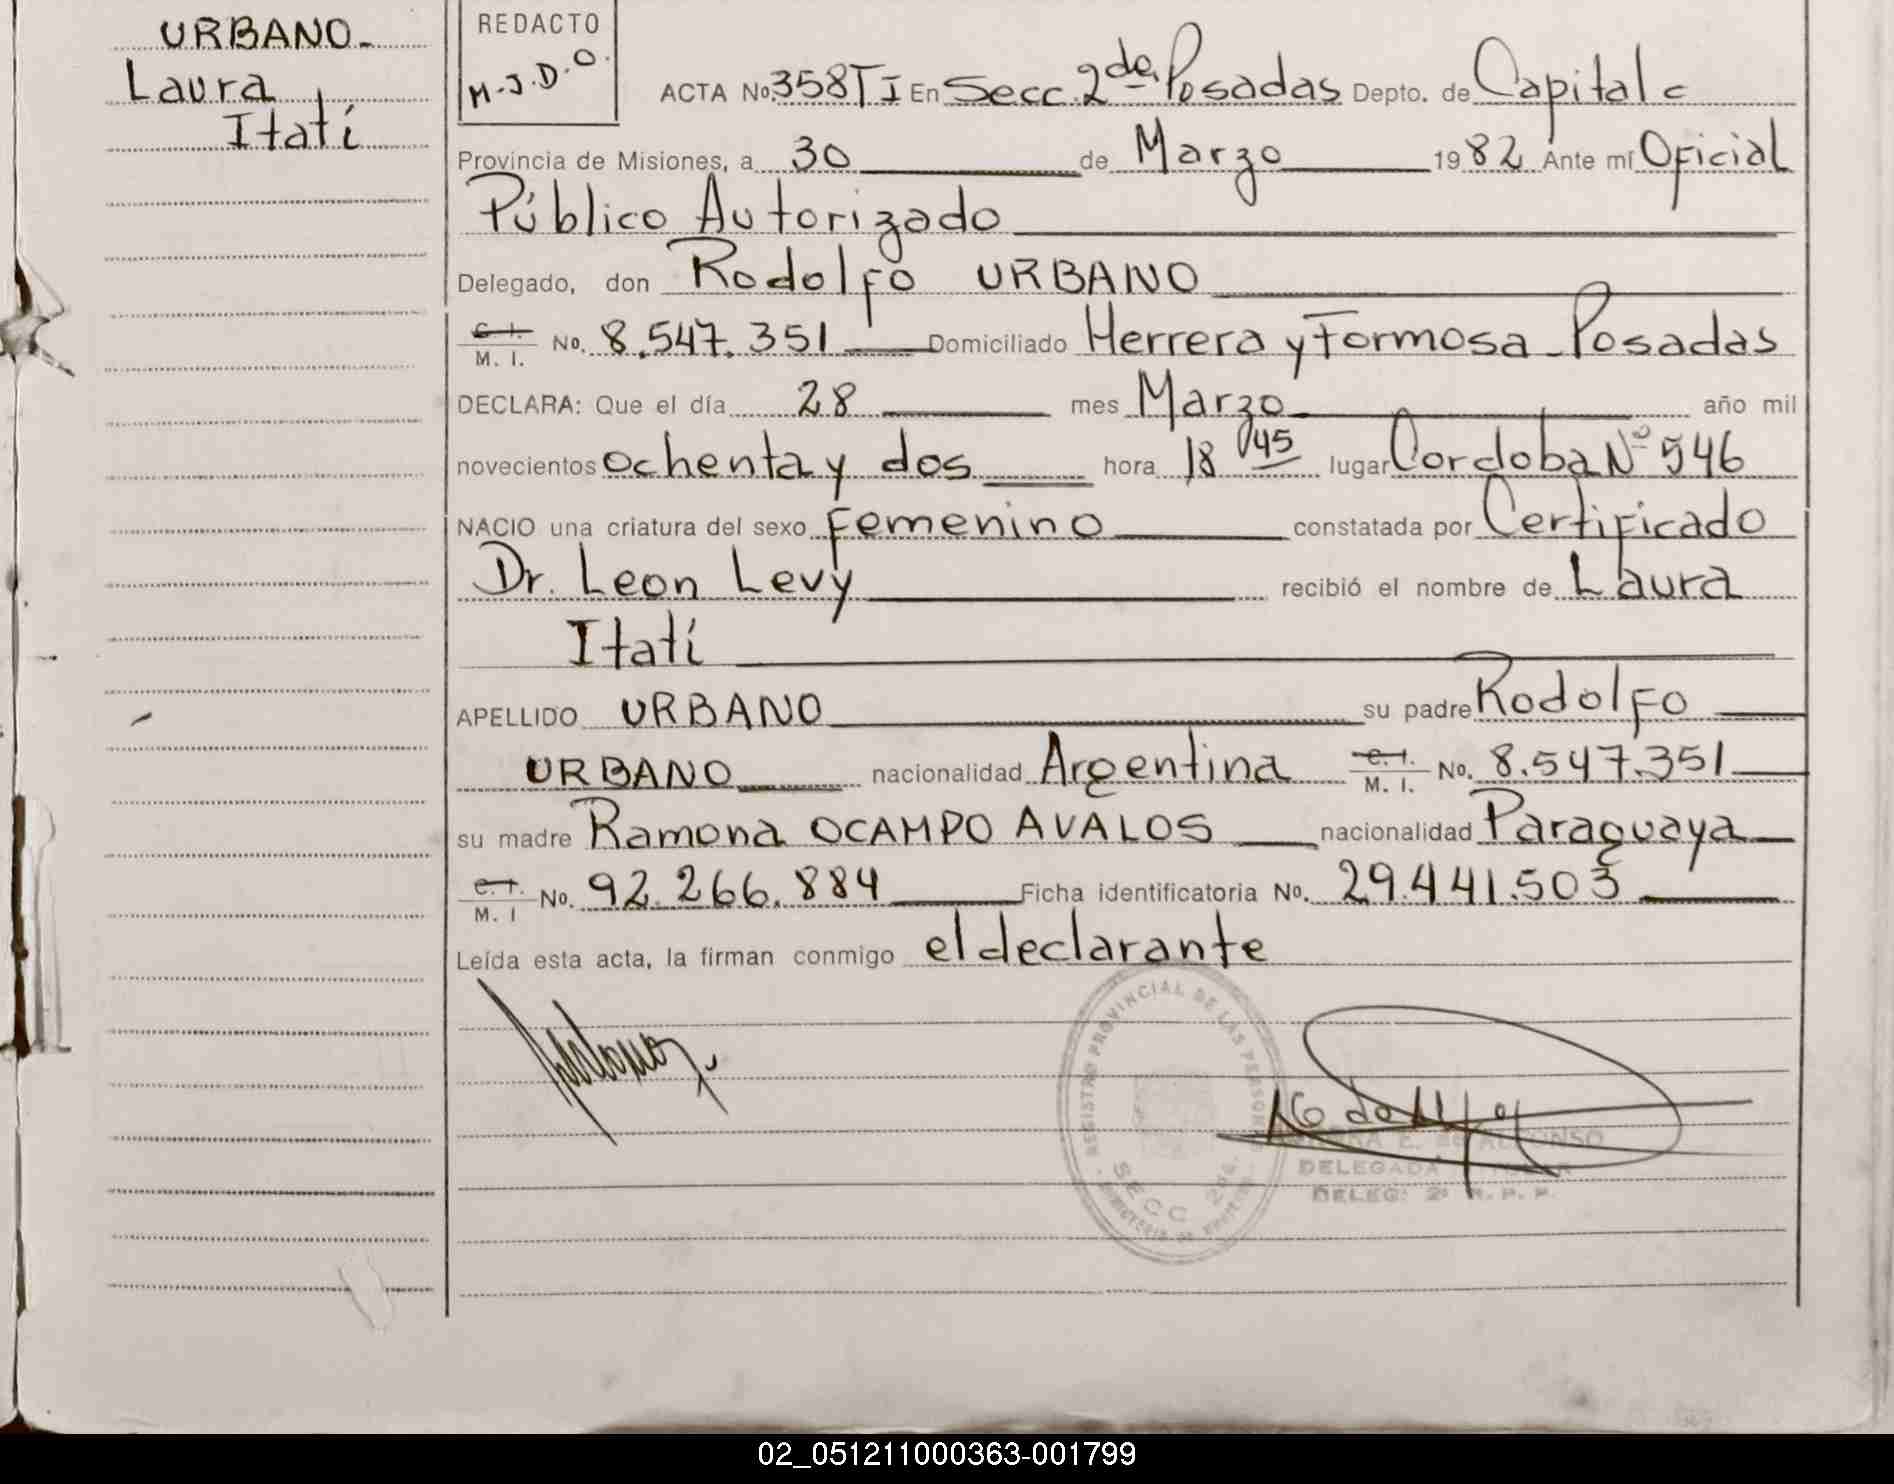 URBANO-
Laura
Itatí
REDACTO
M.J.D.O.
ACTA No. 358 T I En Secc. 2da. Posadas Depto. de Capital
Provincia de Misiones, a 30 de Marzo 1982 Ante mí Oficial
Público Autorizado
Delegado, don Rodolfo URBANO
C. I. / M. I. No. 8.547.351 Domiciliado Herrera y Formosa - Posadas
DECLARA: Que el día 28 mes Marzo año mil
novecientos ochenta y dos hora 18 45 lugar Cordoba Nº 546
NACIO una criatura del sexo femenino constatada por Certificado
Dr. Leon Levy recibió el nombre de Laura
Itatí
APELLIDO URBANO su padre Rodolfo
URBANO nacionalidad Argentina C. I. / M. I. No. 8.547.351
su madre Ramona OCAMPO AVALOS nacionalidad Paraguaya
C. I. / M. I No. 92.266.884 Ficha identificatoria No. 29.441.503
Leída esta acta, la firman conmigo el declarante
REGISTRO PROVINCIAL DE LAS PERSONAS
SECC 2da.
E. de ALFONSO
DELEGADA TITULAR
DELEG. 2ª R. P. P.
02_051211000363-001799